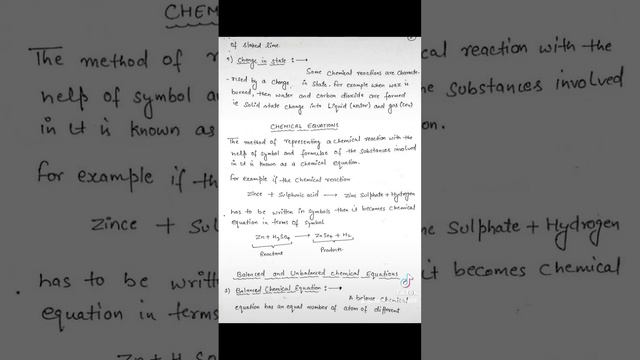 of slaked lime.
4) Change in state :→
Some Chemical reactions are Characte-
-rised by a change in state. For example when wax is
burned, then water and carbon dioxide are formed
ie Solid state change into liquid (water) and gas (CO2)
CHEMICAL EQUATIONS
The method of representing a chemical reaction with the
help of symbol and formulae of the substances involved
in it is known as a chemical equation.
For example if the Chemical reaction
Zince + Sulphuric acid → Zinc Sulphate + Hydrogen
has to be written in symbols then it becomes Chemical
equation in terms of symbol
Zn + H2SO4 → ZnSO4 + H2
Reactant Products
Balanced and Unbalanced Chemical Equations
Balanced Chemical Equation :→
A balance chemical
equation has an equal number of atom of different
CHEM
The method of r
help of symbol a
in it is known as
For example if th
Zince + Sul
has to be writ
equation in terms
Zn + H SO
cal reaction with the
he Substances involved
on.
ne Sulphate + Hydrogen
it becomes Chemical